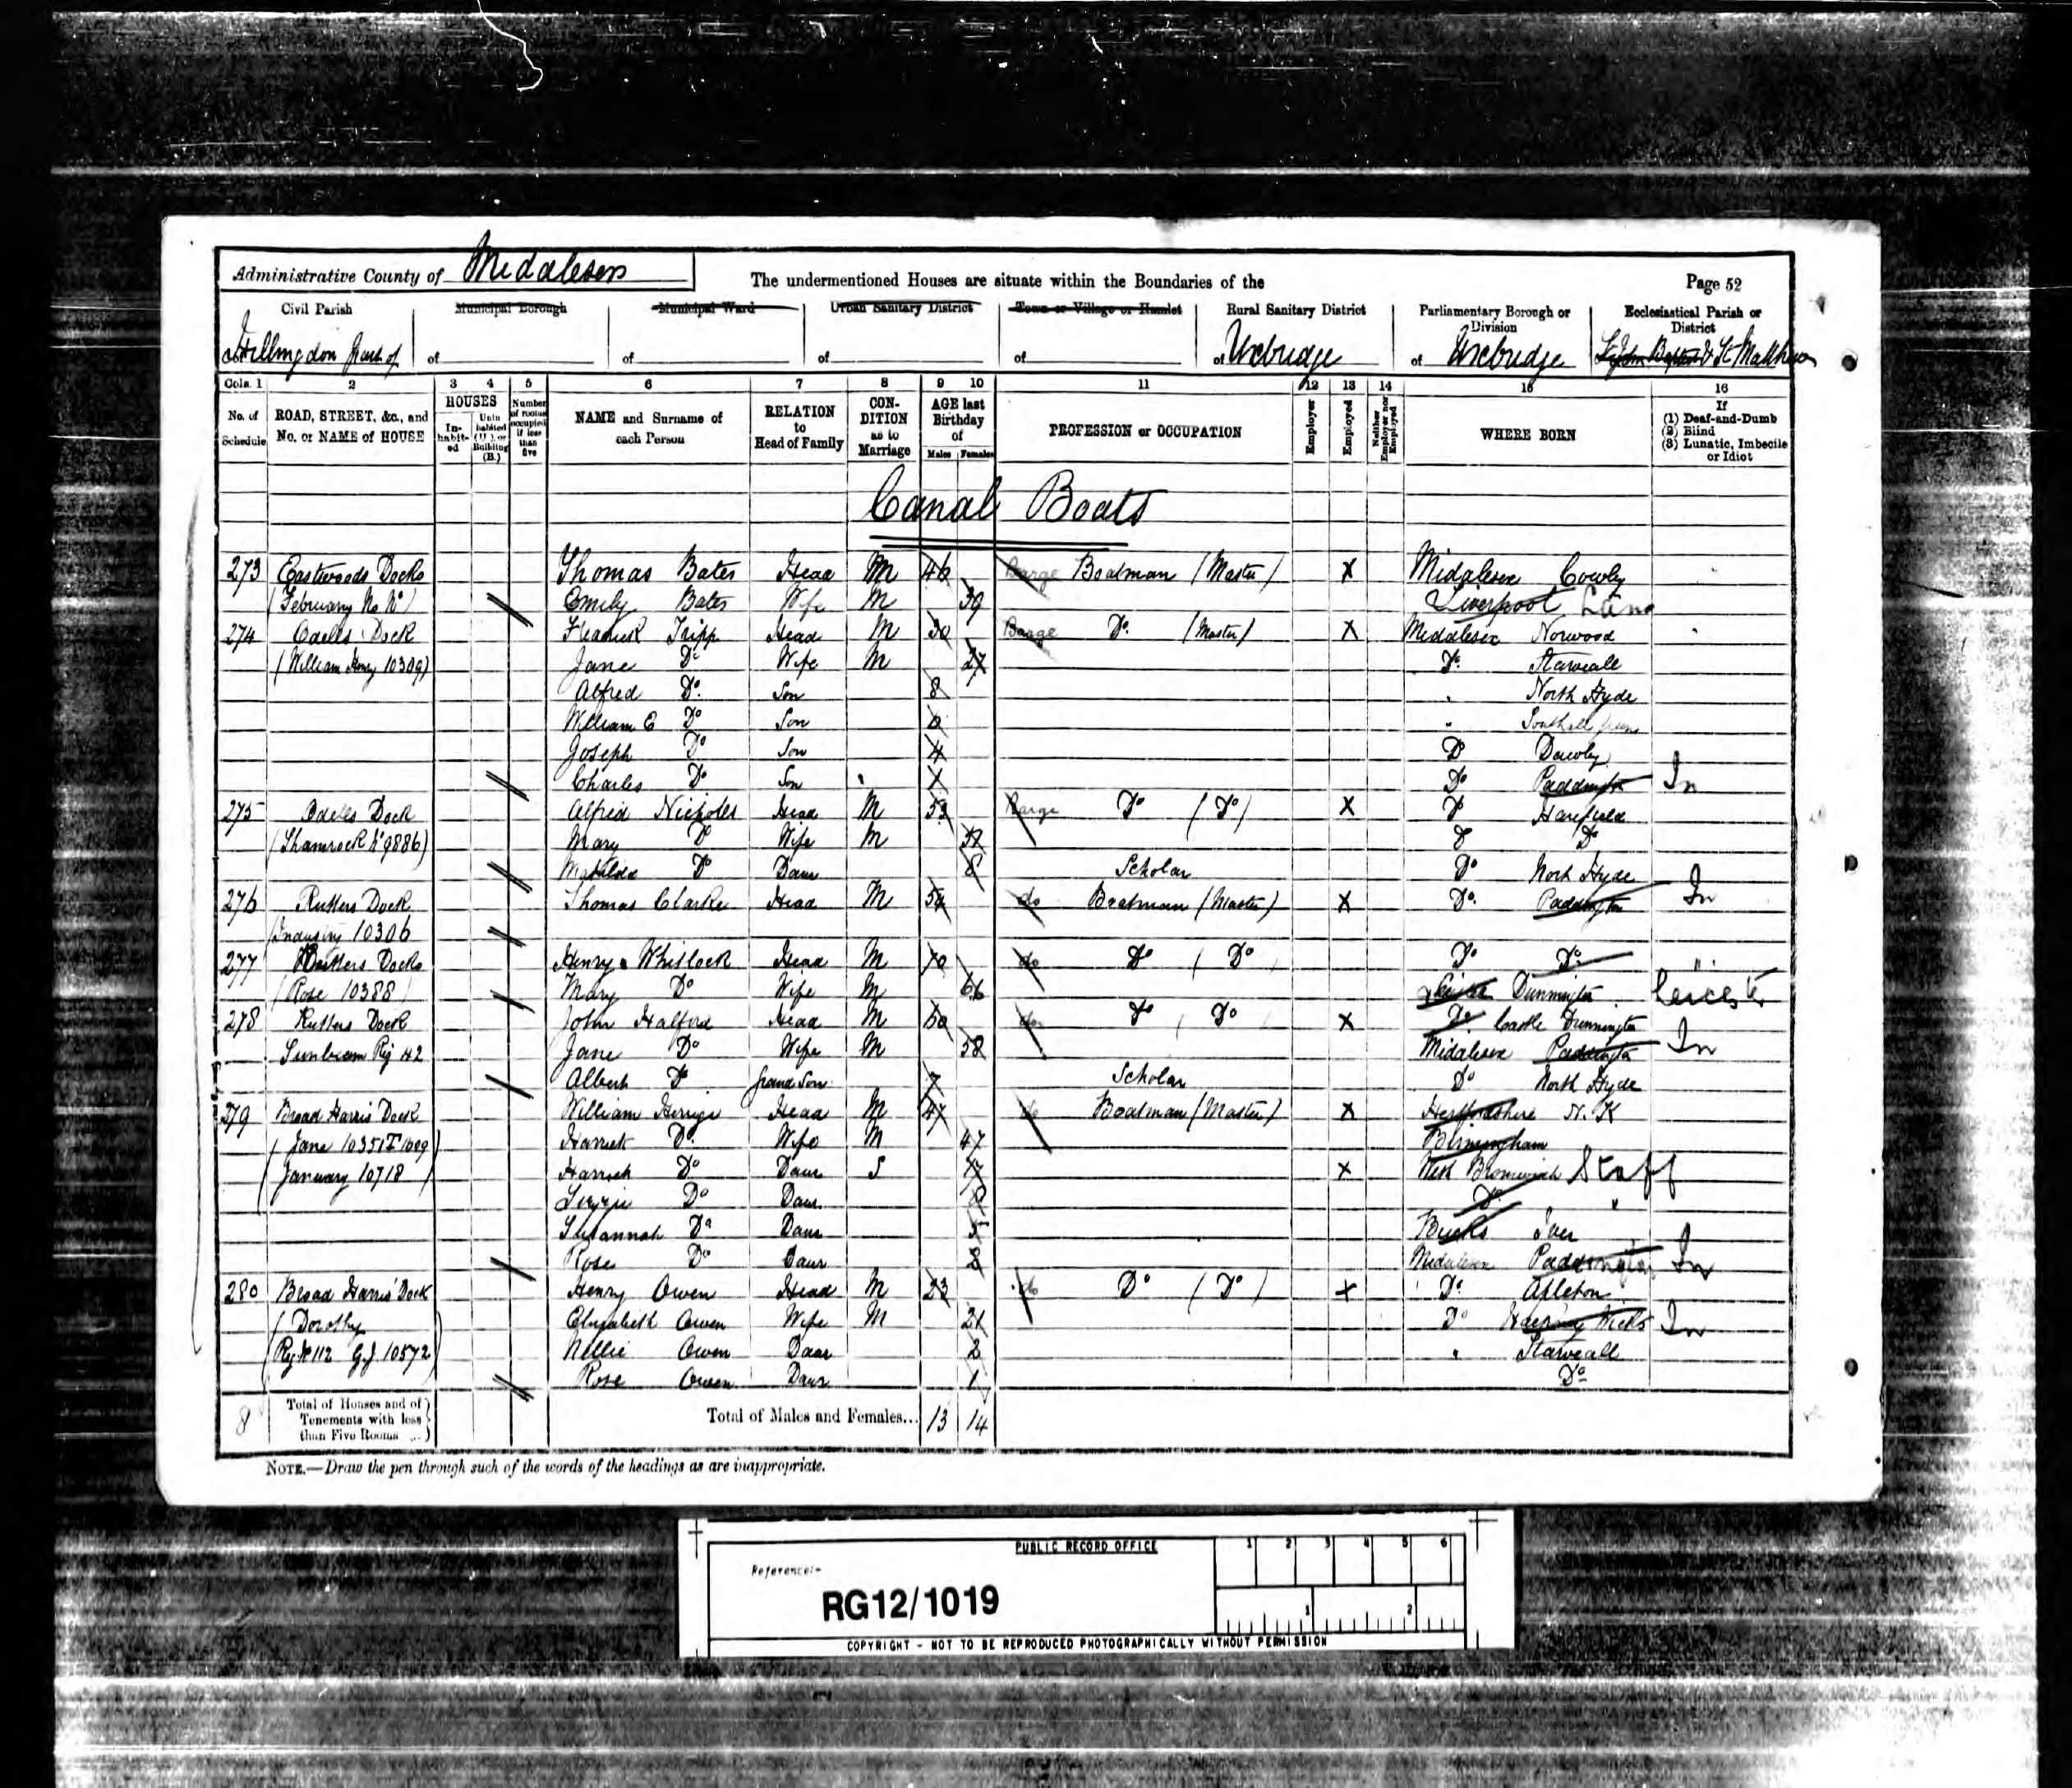 Administrative County of Middlesex
The undermentioned Houses are situate within the Boundaries of the
Page 52
Civil Parish
Municipal Borough
Municipal Ward
Urban Sanitary District
Town or Village or Hamlet
Rural Sanitary District
Parliamentary Borough or Division
Ecclesiastical Parish or District
of Hillingdon part of
of
of
of
of
of Uxbridge
of Uxbridge
St John Baptist & St Matthew
Cols. 1 2 3 4 5 6 7 8 9 10 11 12 13 14 15 16
No. of Schedule
ROAD, STREET, &c., and No. or NAME of HOUSE
HOUSES
In-habit-ed
Unin habited (U.), or Building (B.)
Number of rooms occupied if less than five
NAME and Surname of each Person
RELATION to Head of Family
CON-DITION as to Marriage
AGE last Birthday of
Males Females
PROFESSION or OCCUPATION
Employer
Employed
Neither Employer nor Employed
WHERE BORN
If
(1) Deaf-and-Dumb
(2) Blind
(3) Lunatic, Imbecile or Idiot
Canal Boats
273 Eastwoods Docks Thomas Bates Head M 46 Barge Boatman (Master) X Middlesex Cowley
(February No No) Emily Bates Wife M 39 Liverpool Lanc
274 Odells Dock Tripp Head M 30 Barge Do (Master) X Middlesex Norwood
(William Henry 10309) Jane Do Wife M 27 Do Starveall
Alfred Do Son 8 " North Hyde
William E Do Son " Southall
Joseph Do Son 4 Do Dawley
Charles Do Son 1 Do Paddington In
275 Odells Dock Alfred Nicholls Head M 53 Barge Do (Do) X Do Harefield
(Shamrock No 9886) Mary Do Wife M Do Do
Matilda Do Daur 8 Scholar Do North Hyde
276 Rutters Dock Thomas Clarke Head M 54 do Boatman (Master) X Do Paddington In
(Industry 10306
277 Rutters Docks Henry Whitlock Head M 70 do Do (Do) Do Do "
(Rose 10388) Mary Do Wife M 66 Dunnington Leicester
278 Rutters Dock John Halford Head M 50 do Do (Do) X Do Castle Dunnington
Sunbeam Reg 42 Jane Do Wife M 58 Middlesex Paddington In
Albert Do Grand Son 7 Scholar Do North Hyde
279 Broad Harris Dock William Head M 47 do Boatman (Master) X Hertfordshire N. K
(Jane 10351 Harriett Do Wife M 47 Birmingham
January 10718) Harriett Do Daur S 17 X West Bromwich Staff
Lizzie Do Daur Do "
Susannah Do Daur 5 Bucks Iver
Rose Do Daur Middlesex Paddington In
280 Broad Harris' Dock Henry Owen Head M 23 do Do (Do) X Do
(Dorothy Elizabeth Owen Wife M 21 Do In
Reg No 112 G.J 10572) Nellie Owen Daur 2 " Starveall
Rose Owen Daur 1 Do
8
Total of Houses and of Tenements with less than Five Rooms
Total of Males and Females... 13 14
NOTE.—Draw the pen through such of the words of the headings as are inappropriate.
PUBLIC RECORD OFFICE
1 2 3 4 5 6
Reference:-
RG12/1019
1 2
COPYRIGHT - NOT TO BE REPRODUCED PHOTOGRAPHICALLY WITHOUT PERMISSION